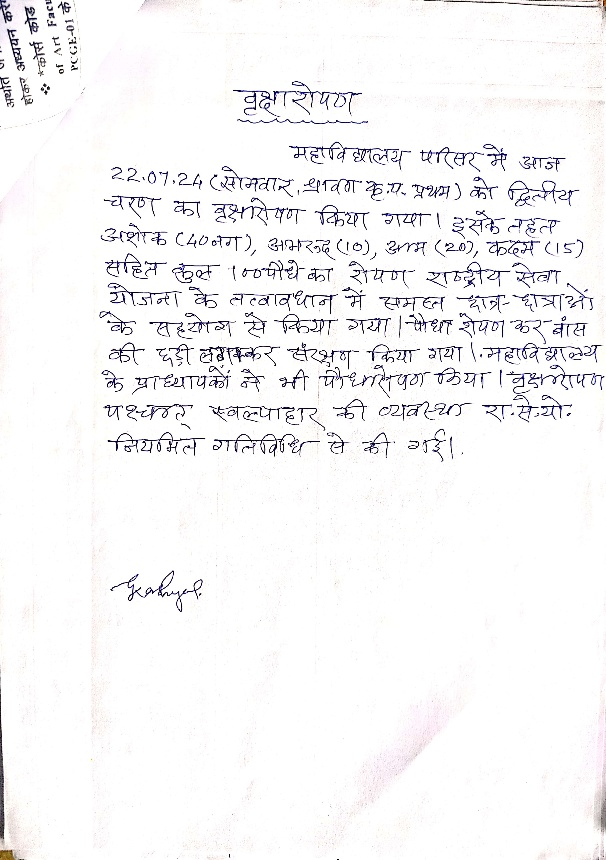 होकर अध्ययन करें
❖ *कोर्स कोड
of Art Facu
PCGE-01 के
वृक्षारोपण
महाविद्यालय परिसर में आज
22.07.24 (सोमवार, श्रावण कृ.प. प्रथम) को द्वितीय
चरण का वृक्षारोपण किया गया। इसके तहत
अशोक (40 नग), अमरूद (10), आम (20), कदम (15)
सहित कुल 100 पौधे का रोपण राष्ट्रीय सेवा
योजना के तत्वावधान में समस्त छात्र-छात्राओं
के सहयोग से किया गया। पौधा रोपण कर बांस
की छड़ी लगाकर संरक्षण किया गया। महाविद्यालय
के प्राध्यापकों ने भी पौधारोपण किया। वृक्षारोपण
पश्चात् स्वल्पाहार की व्यवस्था रा.से.यो.
नियमित गतिविधि से की गई।